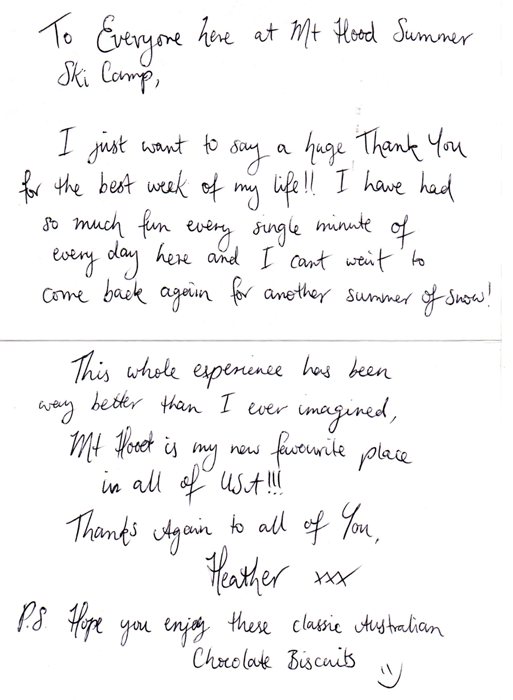 To Everyone here at Mt Hood Summer
Ski Camp,
I just want to say a huge Thank You
for the best week of my life!! I have had
so much fun every single minute of
every day here and I cant wait to
come back again for another summer of snow!
This whole experience has been
way better than I ever imagined,
Mt Hood is my new favourite place
in all of USA!!!
Thanks Again to all of You,
Heather xxx
P.S. Hope you enjoy these classic Australian
Chocolate Biscuits